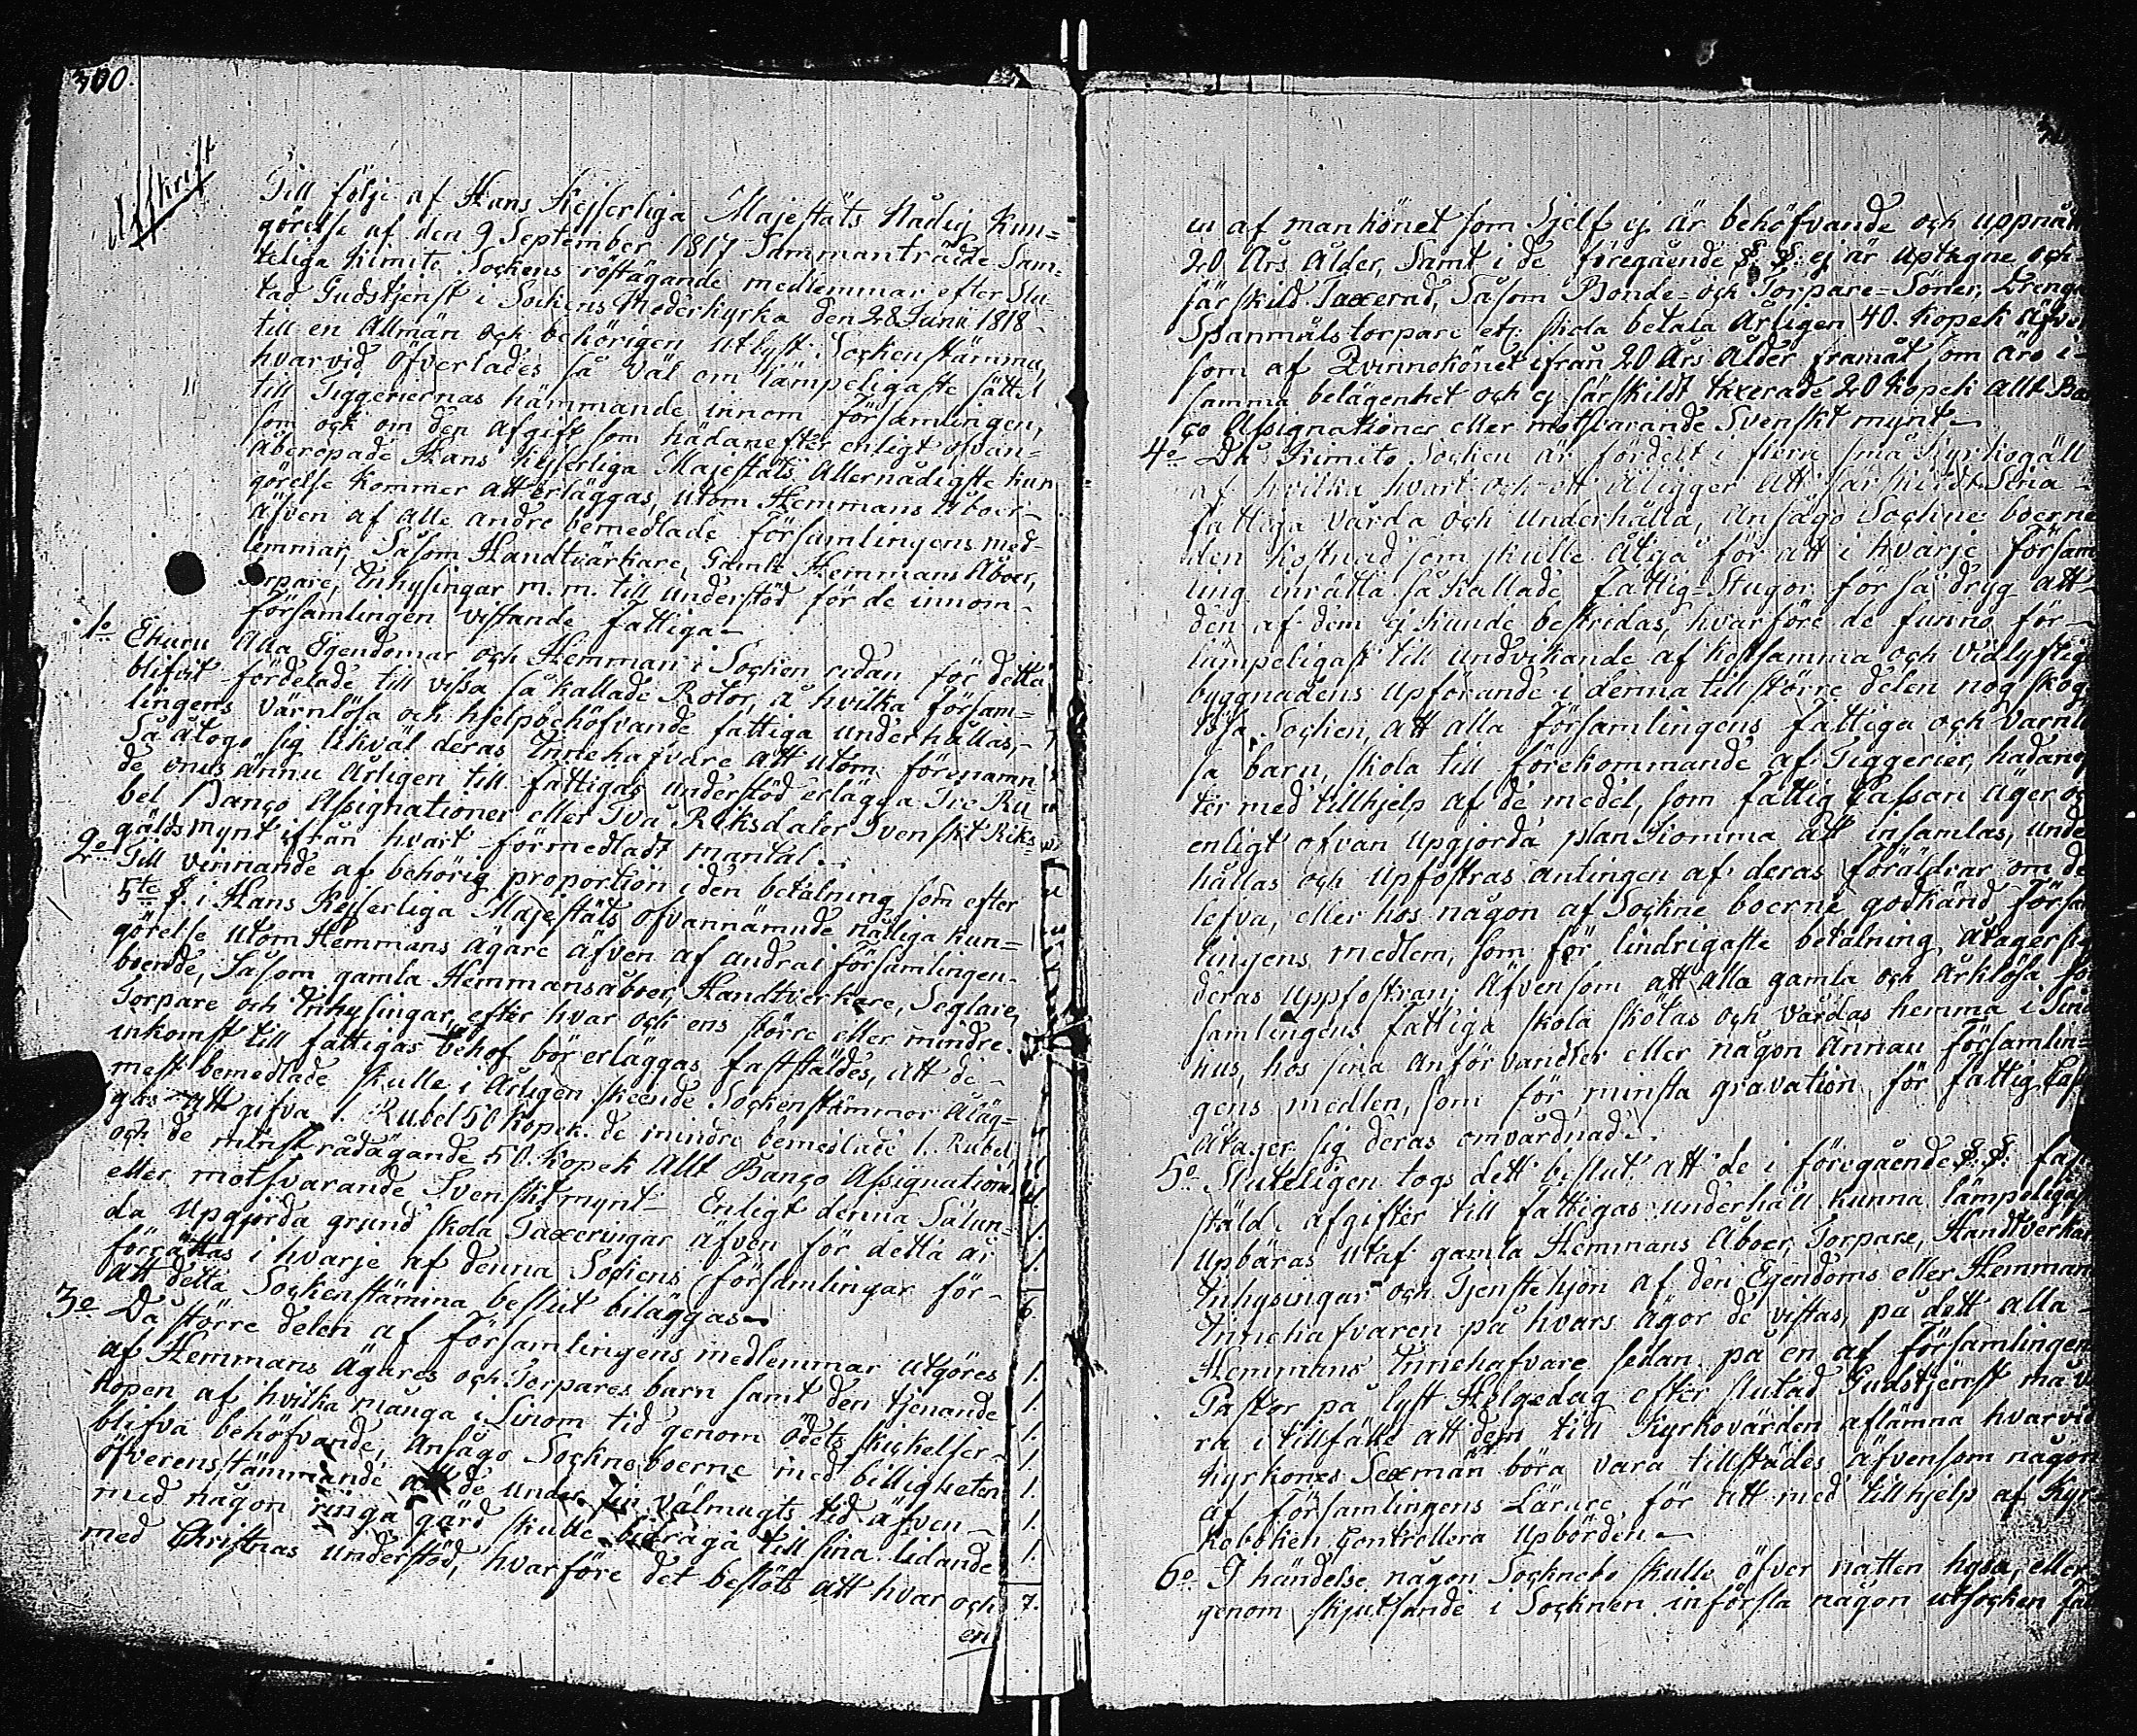 300.
Afskrift
Till följe af Hans Kejserliga Majestäts Nådig Kun=
görelse af den 9 September 1817 Sammanträdde Sam=
teliga Kimito Sockens röstägande medlemmar efter Slu-
tad Gudstjenst i Sockens Moderkyrka den 28 Junii 1818-
till en Allmän och behörigen Utlyst Sockenstämma,
hvarvid öfverlades så väl om lämpeligaste sättet
till Tiggeriernas hämmande innom Församlingen,
som ock om den Afgift som hädanefter enligt ofvan=
åberopade Hans Kejserliga Majestäts Allernådigste Kun
görelse kommer att erläggas, utom Hemmans Åboer-
äfven af Alle andre bemedlade Församlingens med-
lemmar, Såsom Handtvärkare, Gamle Hemmans Åboer,
Torpare, Inhysingar m. m. till understöd för de innom-
Församlingen vistande Fattiga-
1o Ehuru Alla Egendomar och Hemman i Socken redan för detta
blifvit fördelade till vissa så kallade Rotor, å hvilka Församl=
lingens Värnlösa och hjelpbehöfvande fattiga underhållas,-
Så åtogo sig likväl deras Innehafvare att utom förenämn
de onus ännu Årligen till fattigas understöd erlägga Tre Ru
bel Banco Assignationer eller Två Riksdaler Svenskt Riks=
gälds mynt ifrån hvart förmedladt mantal.-
2o Till vinnande af behörig proportion i den betalning som efter
5te §. i Hans Kejserliga Majestäts ofvannämnde nådiga Kun=
görelse utom Hemmans ägare äfven af andra i Församlingen-
boende, Såsom gamla Hemmansåboer, Handtverkare, Seglare,
Torpare och Inhysingar, efter hvar och ens större eller mindre
inkomst till fattigas behof bör erläggas, fastställdes, att de-
mest bemedlade skulle i Årligen skeende Sockenstämmor Åläg=
gas att gifva 1. Rubel 50 Kopek. de mindre bemedlade 1. Rubel,
och de minst rådägande 50. Kopek Allt Banco Assignationer
eller motsvarande Svenskt mynt- Enligt denna Sålun=
da Upgjorda grund skola Taxeringar äfven för detta år
förrättas i hvarje af denna Sockens Församlingar för-
att detta Sockenstämma beslut biläggas-
3o Då större delen af Församlingens medlemmar utgöres
af Hemmans Ägares och Torpares barn samt den tjenande
hopen af hvilka många i Sinom tid genom ödets skickelser-
blifva behöfvande; Ansågo Sockneboerne med billigheten
öfverensstämmande att de under sin välmagts tid äfven-
med någon ringa gärd skulle bidraga till sina lidande
med Christnas Understöd, hvarföre det beslöts att hvar och
en
en af mankönet som Sjelf ej är behöfvande och uppnått
20 Års Ålder, Samt i de föregående §. §. ej är uptagne och
särskild Taxerad, Såsom Bonde- och Torpare-Söner, Drengar
Spanmålstorpare etc: skola betala Årligen 40. Kopek äfven
som af Qvinnokönet ifrån 20 Års Ålder framåt som äro i
samma belägenhet och ej särskildt taxerade 20 Kopek Allt Ban
co Assignationer eller motsvarande Svenskt mynt-
4o Då Kimito Socken är fördelt i flere små Kyrkogäll
af hvilka hvart och ett åligger Att särskildt Sina-
fattiga vårda och Underhålla, Ansågo Sockne boerne
den kostnad som skulle åtgå för att i hvarje försam
ling inrätta så kallade Fattig-Stugor för så dryg att
den af dem ej kunde bestridas, hvarföre de funno för-
lämpeligast till undvikande af kostsamma och Vidlyftig
byggnadens Upförande i denna till större delen nog skog
lösa, Socken, att alla Församlingens Fattiga och Värnlö
sa barn, skola till förekommande af Tiggerier, hädanef
ter med tillhjelp af de medel, som Fattig Cassan äger och
enligt ofvan Upgjorda plan komma att insamlas, Unde
hållas och Upfostras antingen af deras föräldrar om de
lefva, eller hos någon af Sockne boerne godkänd Försam
lingens medlem, som för lindrigaste betalning åtager sig
deras Uppfostran; Äfvensom att Alla gamla och Orklösa för
samlingens fattiga skola skötas och vårdas hemma i Sina
hus, hos sina Anförvandter eller någon Annan Församlin=
gens medlem, som för minsta gravation för fattig Cass
åtager sig deras omvårdnad.
5o Sluteligen togs dett beslut: att de i föregående §. §. fast
stäld. afgifter till fattigas underhåll kunna lämpeligast
Upbäras utaf gamla Hemmans Åboer, Torpare, Handtverkar
Inhysingar och Tjenstehjon af den Egendoms eller Hemmans
Innehafvaren på hvars Ägor de vistas, på dett alla-
Hemmans Innehafvare sedan på en af Församlingens
Pastor på lyst Helgedag efter slutad Gudstjenst må va
ra i tillfälle att dem till Kyrkovärden aflämna hvarvid
Kyrkones Sexmän böra vara tillstädes äfvensom någon
af Församlingens Lärare för att med tillhjelp af Kyr-
koboken Controllera Upbörden-
6o I händelse någon Sockneb skulle öfver natten hysa, eller
genom skjutsande i Socknen införsla någon utsocken Fat